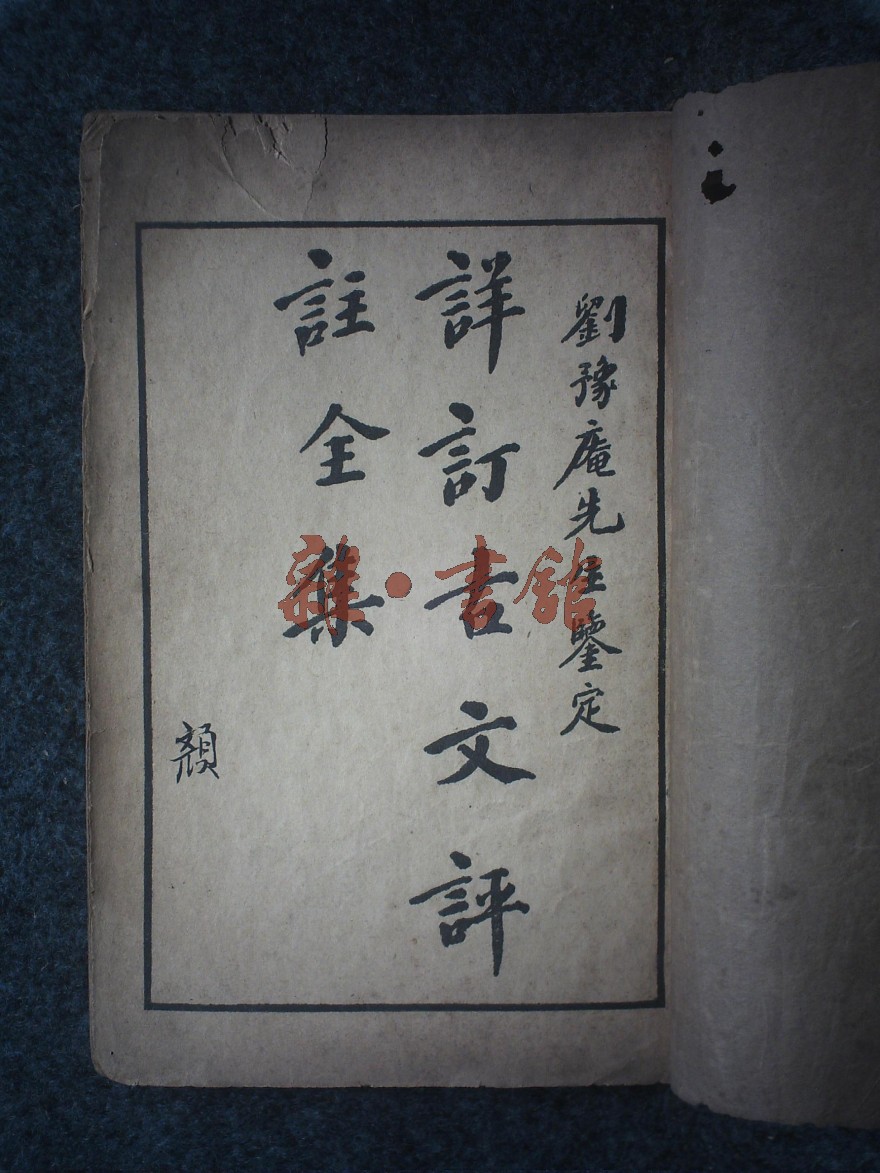 劉豫庵先生鑒定
詳訂古文評
註全集
雜·書館